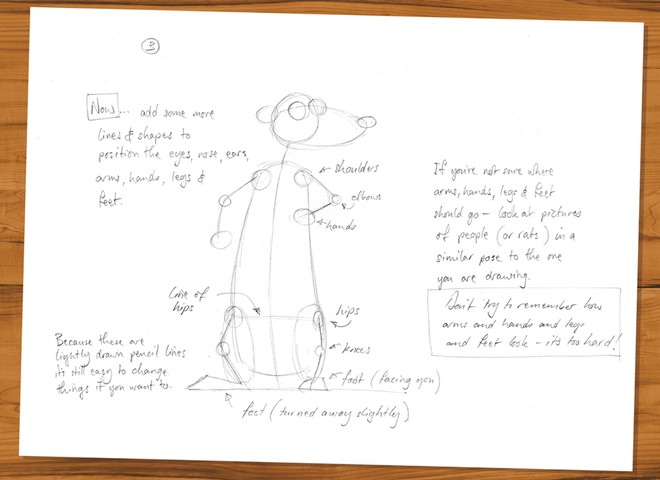 3
Now... add some more
lines & shapes to
position the eyes, nose, ears,
arms, hands, legs &
feet.
shoulders
elbows
hands
If you're not sure where
arms, hands, legs & feet
should go – look at pictures
of people (or rats) in a
similar pose to the one
you are drawing.
Don't try to remember how
arms and hands and legs
and feet look – it's too hard!
Line of
hips
hips
knees
foot (facing you)
foot (turned away slightly)
Because these are
lightly drawn pencil lines
it's still easy to change
things if you want to.